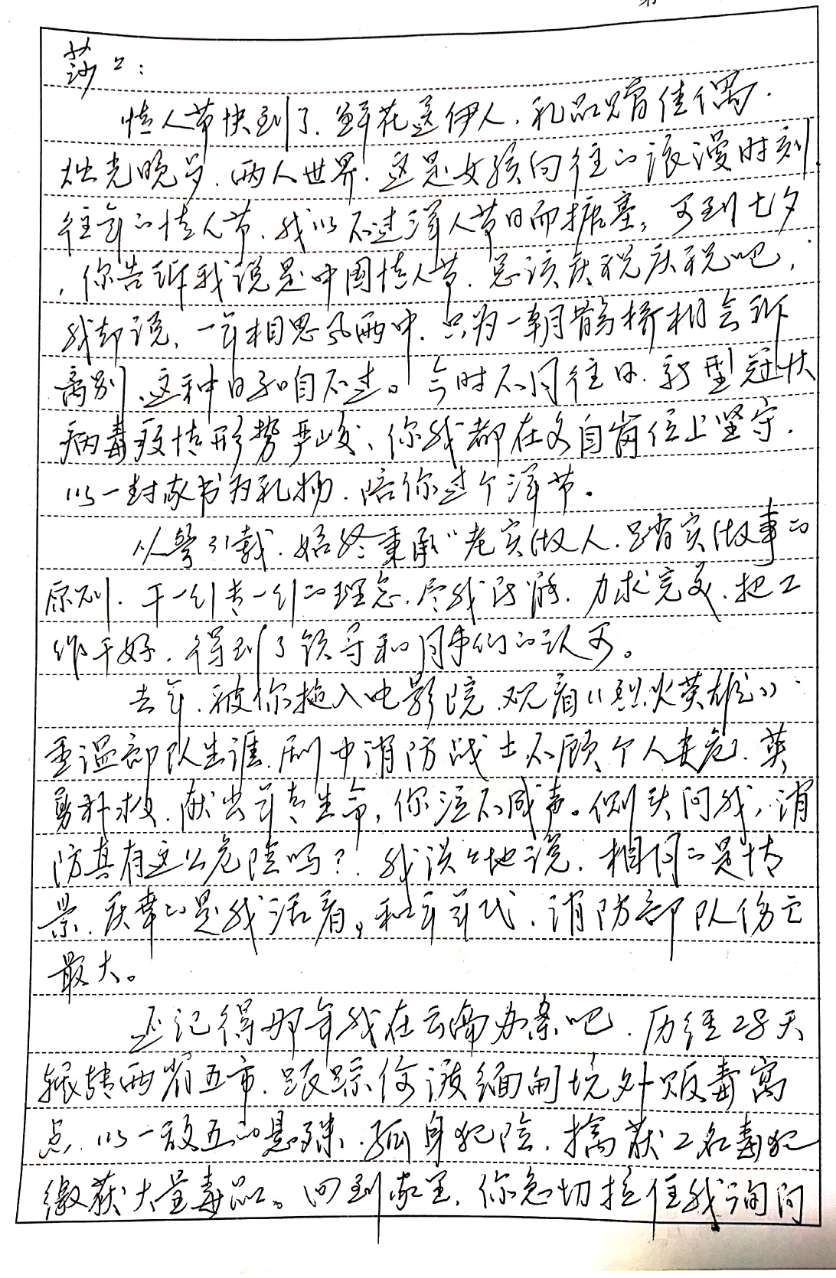 莎莎:
情人节快到了,鲜花送伊人,礼品赠佳偶,
烛光晚宴,两人世界,这是女孩向往的浪漫时刻,
往年的情人节,我以不过洋人节日而搪塞,可到七夕
,你告诉我说是中国情人节,总该庆祝庆祝吧,
我却说,一年相思风雨中,只为一朝鹊桥相会就
离别,这种日子咱不过。今时不同往日,新型冠状
病毒疫情形势严峻、你我都在各自岗位上坚守,
以一封家书为礼物,陪你过个洋节。
从警引载,始终秉承"老实做人,踏实做事的
原则,干一行专一行的理念,尽我所能,力求完美,把工
作干好,得到了领导和同事们的认可。
去年,被你拖入电影院,观看《烈火英雄》
重温部队生涯,剧中消防战士不顾个人安危,英
勇扑救,献出年青生命,你泣不成声。侧头问我,消
防真有这么危险吗?我淡淡地说,相同的是情
景,庆幸的是我活着。和平年代,消防部队伤亡
最大。
还记得那年我在云南办案吧,历经28天
辗转两省五市,跟踪侦渡缅甸境外贩毒窝
点,以一敌五的悬殊,孤身犯险,擒获2名毒犯
缴获大量毒品。回到家里,你急切拉住我询问